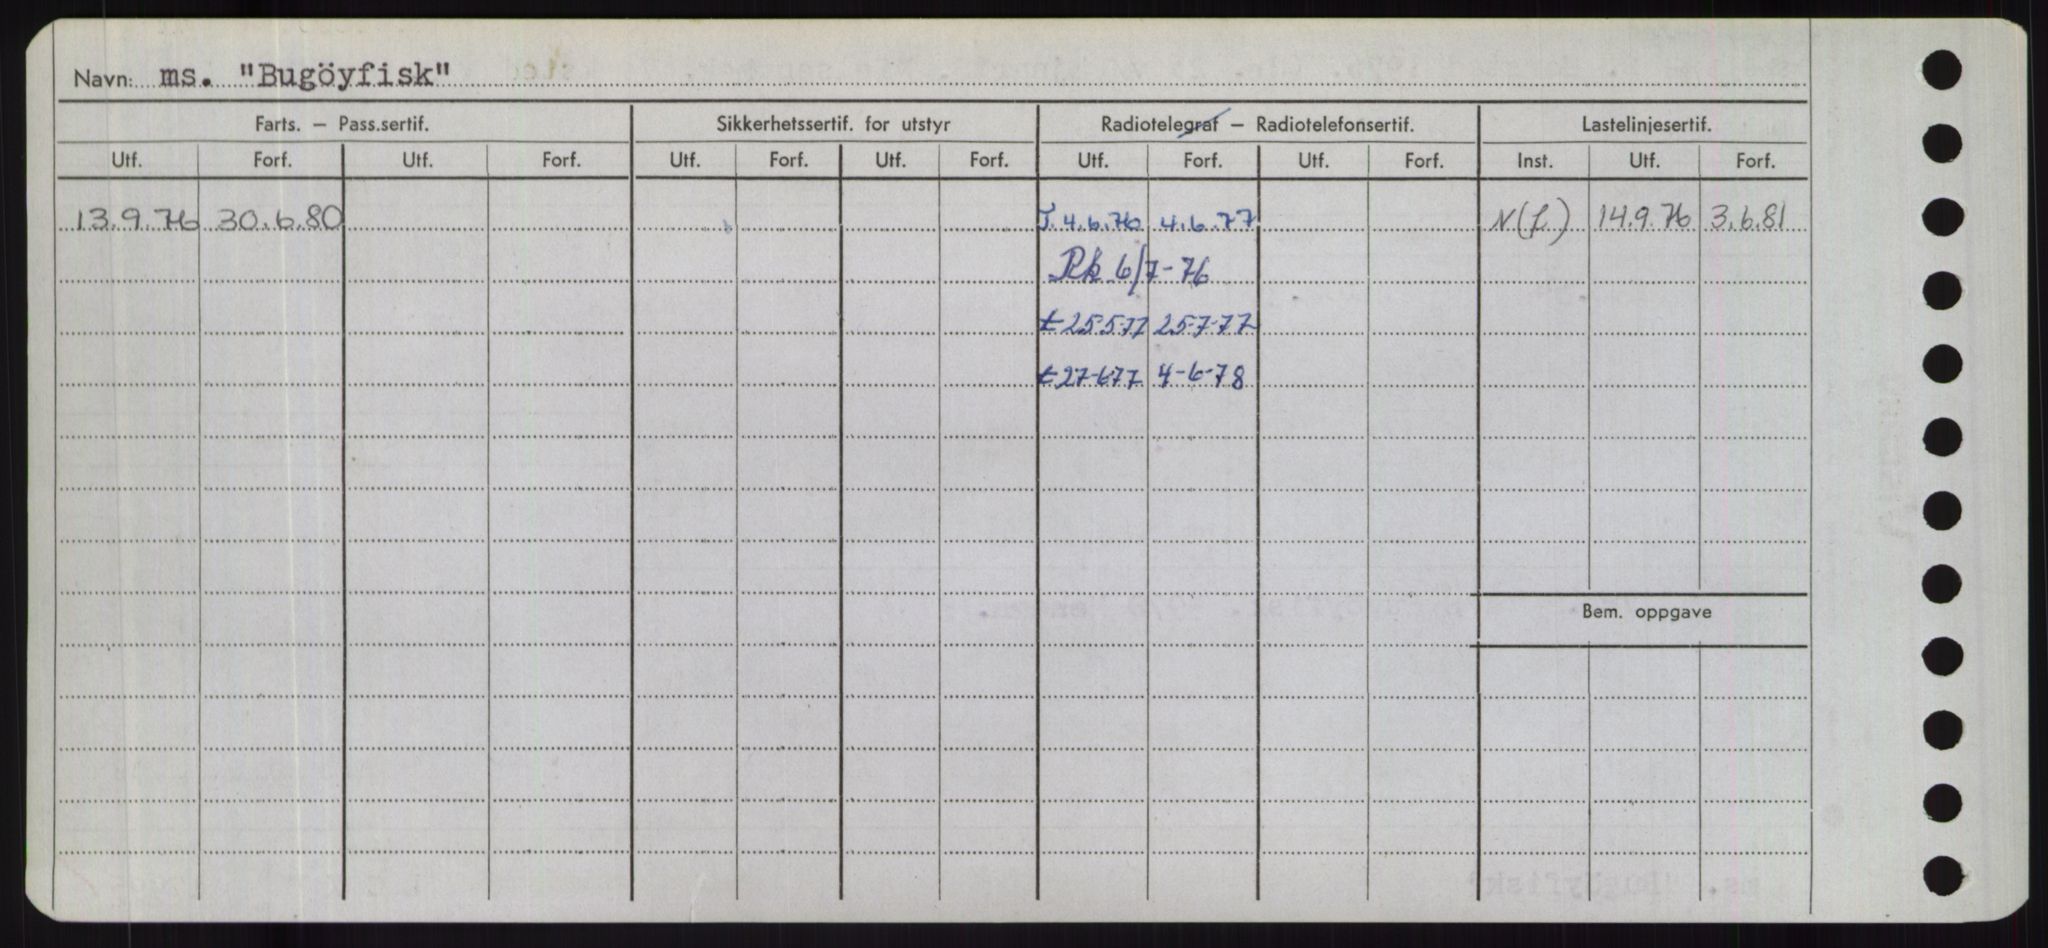 Navn: ms. "Bugöyfisk"
Farts. – Pass.sertif. Sikkerhetssertif. for utstyr Radiotelegraf – Radiotelefonsertif. Lastelinjesertif.
Utf. Forf. Utf. Forf. Utf. Forf. Utf. Forf. Utf. Forf. Utf. Forf. Inst. Utf. Forf.
13.9.76 30.6.80 T. 4.6.76 4.6.77 N(L) 14.9.76 3.6.81
Rk 6/7-76
t 25-5-77 25-7-77
t 27-6-77 4-6-78
Bem. oppgave